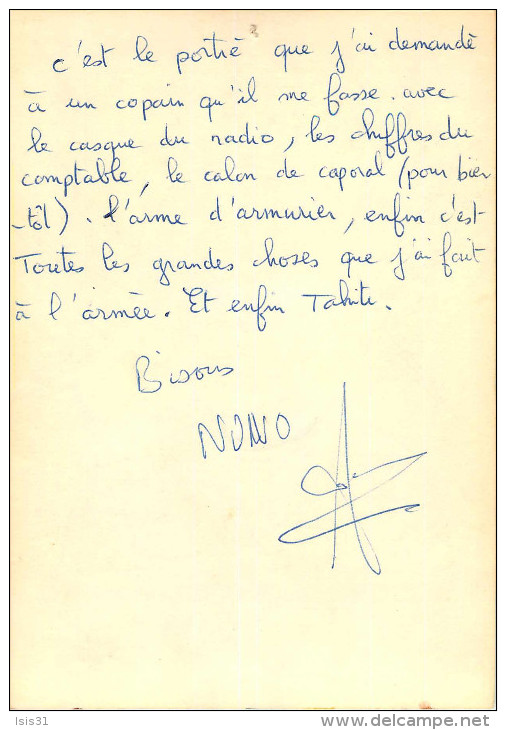 c'est le portrè que j'ai demandè
à un copain qu'il me fasse. avec
le casque du radio, les chiffres du
comptable, le calon de caporal (pour bien
-tôt). l'arme d'armurier, enfin c'est
Toutes les grandes choses que j'ai fait
à l'armèe. Et enfin Tahiti.
Bisous
NUNO
Isis31
www.delcampe.net